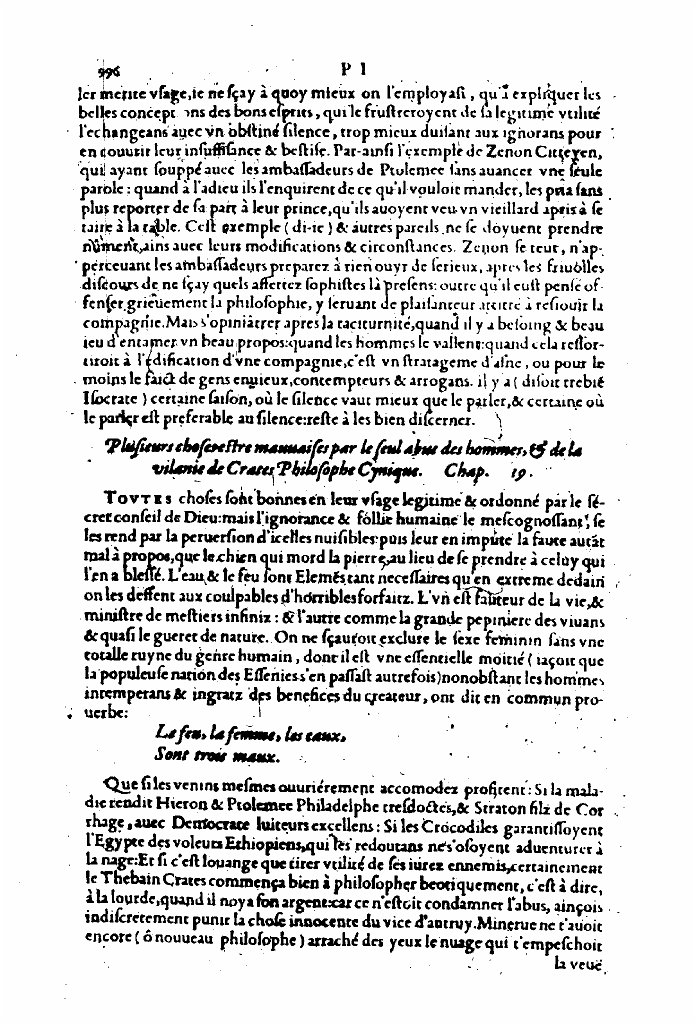 996 P I
ler merite vsage, ie ne sçay à quoy mieux on l'employast, qu'à expliquer les
belles concept ons des bons esprits, qui le frustreroyent de sa legitime vtilité
l'echangeans auec vn obstiné silence, trop mieux duisant aux ignorans pour
en couurir leur insuffisance & bestise. Par-ainsi l'exemple de Zenon Citteyen,
qui ayant souppé auec les ambassadeurs de Ptolemee sans auancer vne seule
parole : quand à l'adieu ils l'enquirent de ce qu'il vouloit mander, les pria sans
plus reporter de sa part à leur prince, qu'ils auoyent veu vn vieillard apris à se
taire à la table. Cest exemple (di-ie) & autres pareils ne se doyuent prendre
nûment, ains auec leurs modifications & circonstances. Zenon se teut, n'ap-
perceuant les ambassadeurs preparez à rien ouyr de serieux, apres les friuolles
discours de ne sçay quels affettez sophistes là presens: outre qu'il eust pensé of-
fenser grieuement la philosophie, y seruant de plaisanteur attitré à resiouir la
compagnie. Mais s'opiniâtrer apres la taciturnité, quand il y a besoing & beau
ieu d'entamer vn beau propos: quand les hommes le vallent: quand cela ressor-
tiroit à l'édification d'vne compagnie, c'est vn stratageme d'asne, ou pour le
moins le faict de gens enuieux, contempteurs & arrogans. il y a (disoit trebiē
Isocrate) certaine saison, où le silence vaut mieux que le parler, & certaine où
le parler est preferable au silence: reste à les bien discerner.
Plusieurs choses estre mauuaises par le seul abus des hommes, & de la
vilanie de Crates Philosophe Cynique. Chap. 19.
TOVTES choses sont bonnes en leur vsage legitime & ordonné par le se-
cret conseil de Dieu: mais l'ignorance & follie humaine le mescognossant, se
les rend par la peruersion d'icelles nuisibles: puis leur en impute la faute autāt
mal à propos, que le chien qui mord la pierre, au lieu de se prendre à celuy qui
l'en a blessé. L'eau, & le feu sont Elemēs tant necessaires qu'en extreme dedain
on les deffent aux coulpables d'horribles forfaitz. L'vn est fauteur de la vie, &
ministre de mestiers infiniz : & l'autre comme la grande pepiniere des viuans
& quasi le gueret de nature. On ne sçauroit exclure le sexe feminin sans vne
totalle ruyne du genre humain, dont il est vne essentielle moitié (iaçoit que
la populeuse nation des Esseniess'en passast autrefois) nonobstant les hommes
intemperans & ingratz des benefices du createur, ont dit en commun pro-
uerbe:
Le feu, la femme, les eaux,
Sont trois maux.
Que si les venins mesmes ouuriérement accomodez profitent: Si la mala-
die rendit Hieron & Ptolemee Philadelphe tresdoctes, & Straton filz de Cor
rhage, auec Democrate luiteurs excellens: Si les Crocodiles garantissoyent
l'Egypte des voleurs Ethiopiens, qui les redoutans ne s'osoyent aduenturer à
la nage: Et si c'est louange que tirer vtilité de ses iurez ennemis, certainement
le Thebain Crates commença bien à philosopher beotiquement, c'est à dire,
à la lourde, quand il noya son argent: car ce n'estoit condamner l'abus, ainçois
indiscretement punir la chose innocente du vice d'autruy. Minerue ne t'auoit
encore (ô nouueau philosophe) arraché des yeux le nuage qui t'empeschoit
la veuë